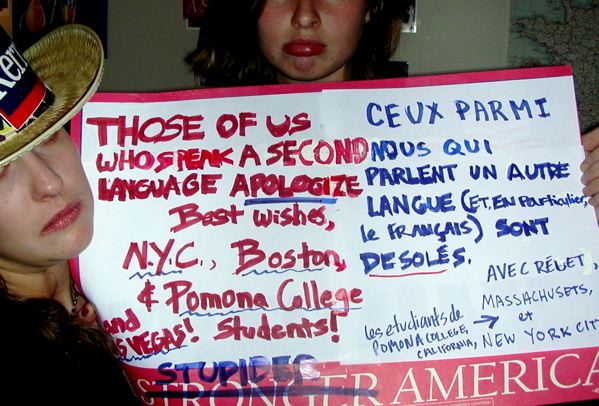 THOSE OF US
WHO SPEAK A SECOND
LANGUAGE APOLOGIZE
Best wishes,
N.Y.C., Boston,
& Pomona College
and
VEGAS! Students!
STUPIDER
STRONGER AMERICA
CEUX PARMI
NOUS QUI
PARLENT UN AUTRE
LANGUE (ET, EN PARTICULIER,
le FRANÇAIS) SONT
DESOLÉS.
AVEC REGRET,
les etudiants de → MASSACHUSETS,
POMONA COLLEGE, et
CALIFORNIA, NEW YORK CITY